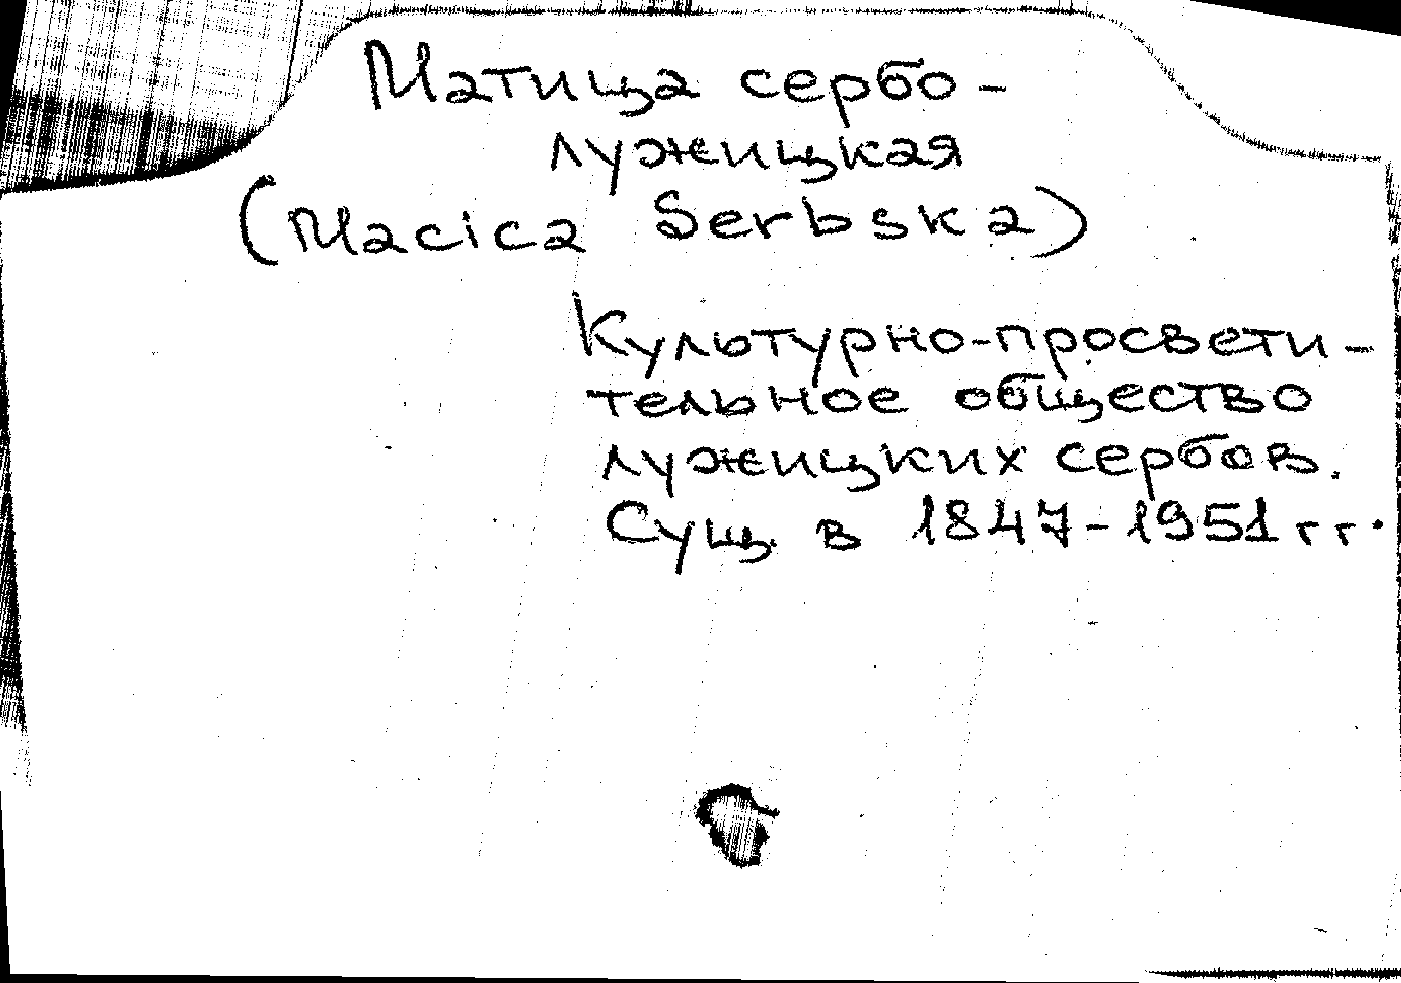 Матица сербо-
лужицкая
(Macica Serbska)
Культурно-просвети-
тельное общество
лужицких сербов.
Сущ. в 1847-1951 гг.